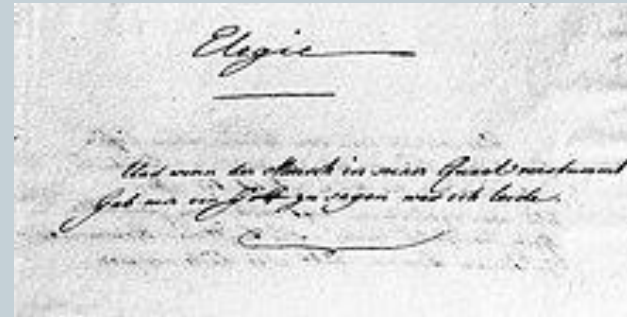 Elegie
Und wenn der Mensch in seiner Quaal verstummt
Gab mir ein Gott zu sagen was ich leide.